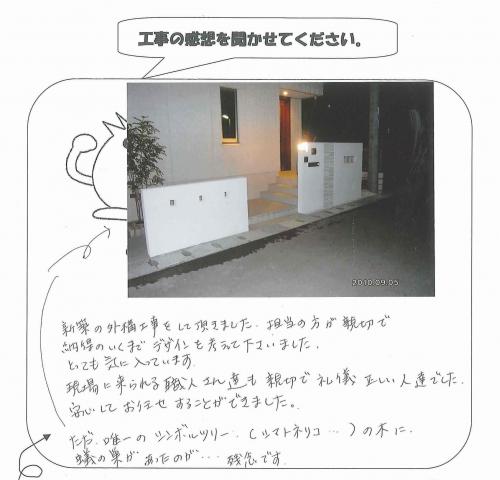 工事の感想を聞かせてください。
2010.09.05
新築の外構工事をして頂きました。担当の方が親切で
納得のいくまでデザインを考えて下さいました。
とても気に入っています。
現場に来られる職人さん達も親切で礼儀正しい人達でした。
安心してお任せすることができました。
ただ、唯一のシンボルツリー、(シマトネリコ…)の木に、
蟻の巣があったのが…残念です。